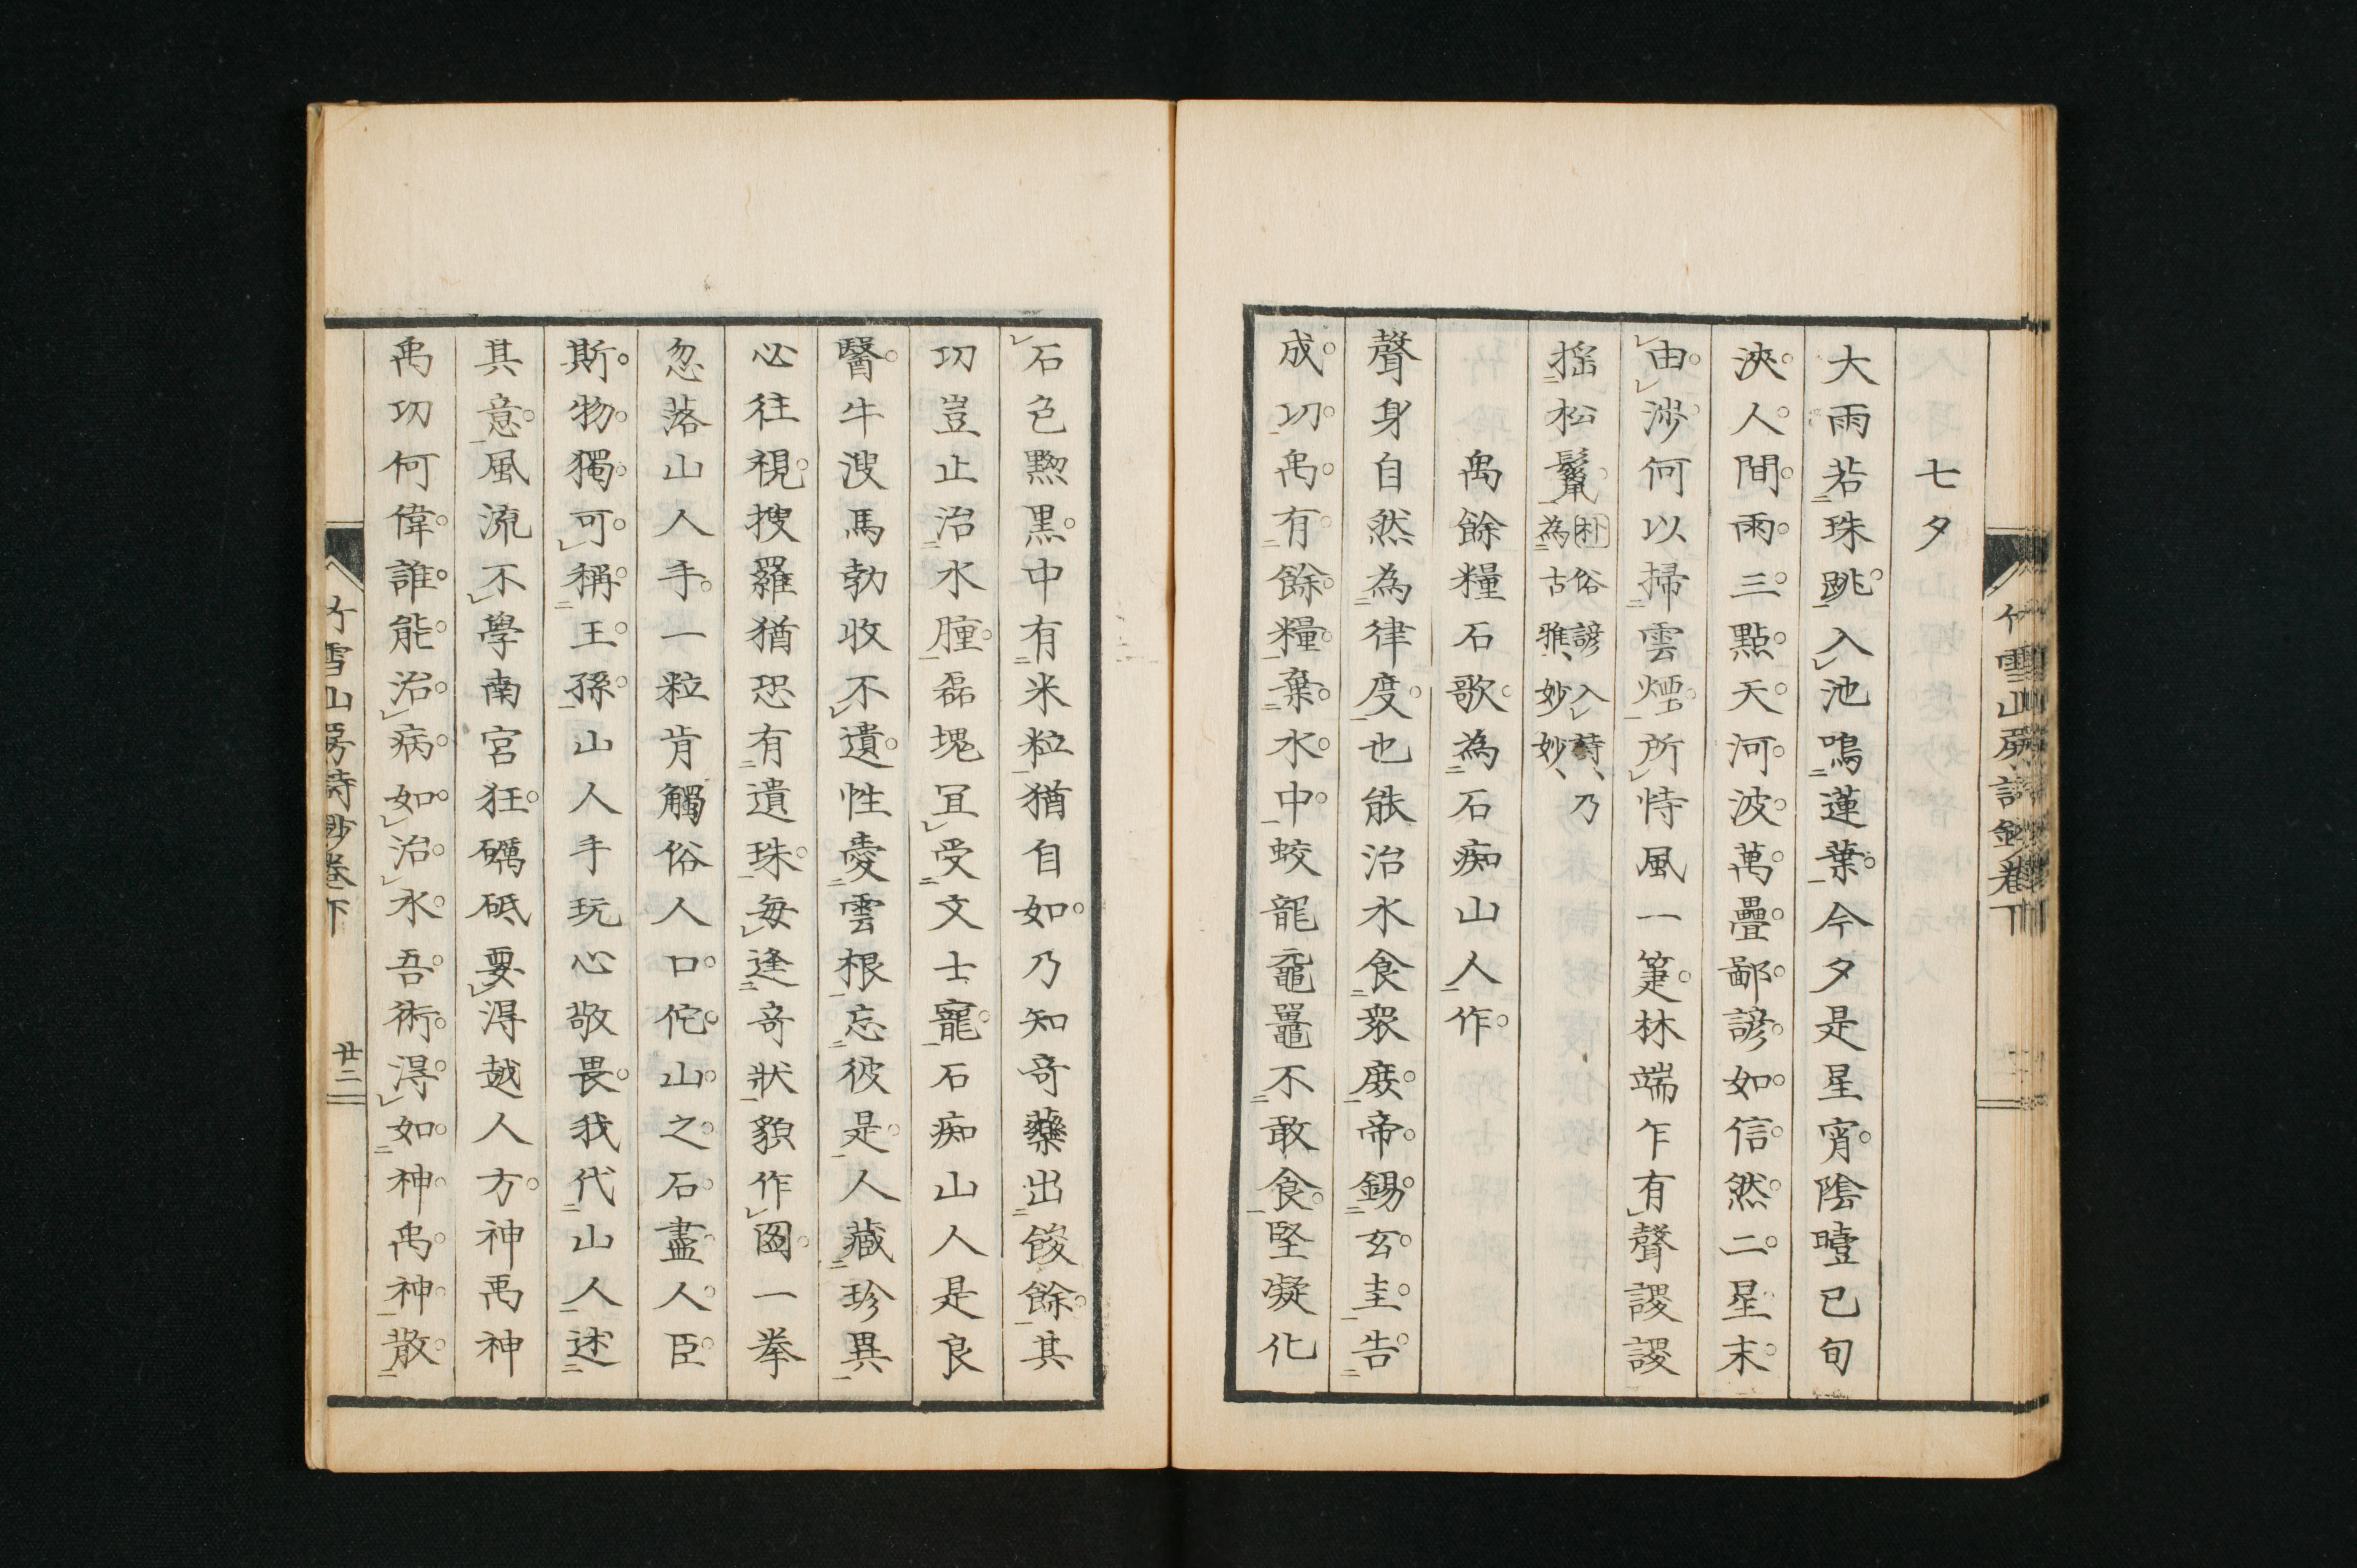 七夕
大雨若珠跳入池鳴蓮葉今夕是星宵陰曀已旬
浹人間雨三點天河波萬疊鄙諺如信然二星末
由渉何以掃雲煙所恃風一箑林端乍有聲謖謖
搖松鬣朴俗諺入詩乃為古雅妙妙
禹餘糧石歌為石痴山人作
聲身自然為律度也能治水食衆庶帝錫玄圭告
成功禹有餘糧棄水中蛟龍黿鼉不敢食堅凝化
石色黝黒中有米粒猶自如乃知奇藥出餕餘其
功豈止治水腫磊塊冝受文士寵石痴山人是良
醫牛溲馬勃收不遺性愛雲根忘彼是人藏珍異
必往視搜羅猶恐有遺珠毎逢奇狀貌作圖一拳
忽落山人手一粒肯觸俗人口佗山之石盡人臣
斯物獨可稱王孫山人手玩心敬畏我代山人述
其意風流不學南宮狂礪砥要得越人方神禹神
禹功何偉誰能治病如治水吾術得如神禹神散
竹雪山房詩鈔卷下
竹雪山房詩鈔卷下 廿二